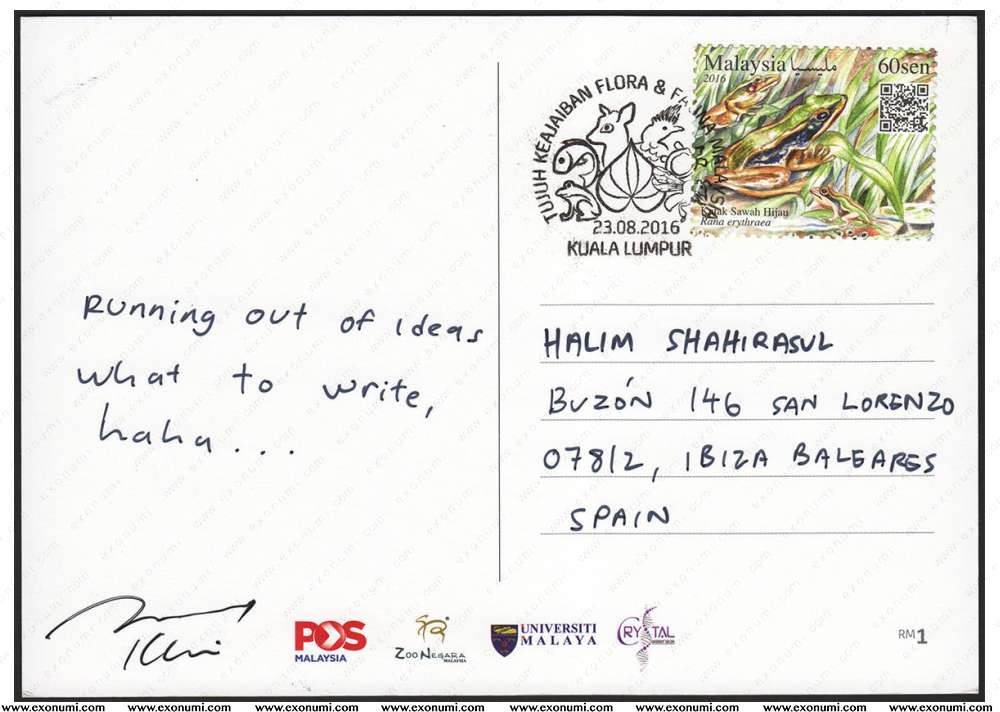 TUJUH KEAJAIBAN FLORA & FAUNA MALAYSIA
23.08.2016
KUALA LUMPUR
Malaysia مليسيا
2016
60sen
Katak Sawah Hijau
Rana erythraea
Running out of ideas
what to write,
haha...
HALIM SHAHIRASUL
BUZÓN 146 SAN LORENZO
07812, IBIZA BALEARES
SPAIN
POS
MALAYSIA
ZOO NEGARA
MALAYSIA
UNIVERSITI
MALAYA
CRYSTAL
RM1
www.exonumi.com www.exonumi.com www.exonumi.com www.exonumi.com www.exonumi.com www.exonumi.com www.exonumi.com